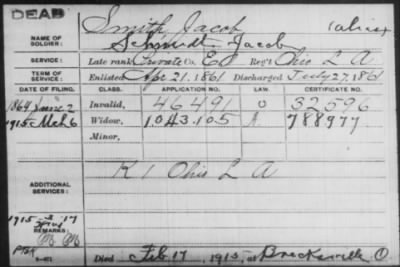 DEAD
Smith Jacob (alias)
NAME OF SOLDIER: Schmidt Jacob
SERVICE: Late rank Private Co. E, Reg't Ohio L A
TERM OF SERVICE: Enlisted Apr 21. 1861 Discharged July 27. 1861
DATE OF FILING. CLASS. APPLICATION NO. LAW. CERTIFICATE NO.
1864 June 2 Invalid, 46491 O 32596
1915 Mch 6 Widow, 1.043.105 A 788977
Minor,
K 1 Ohio L A
ADDITIONAL SERVICES:
1915-3-17
REMARKS:
Died Feb 17, 1915, at Brecksville O